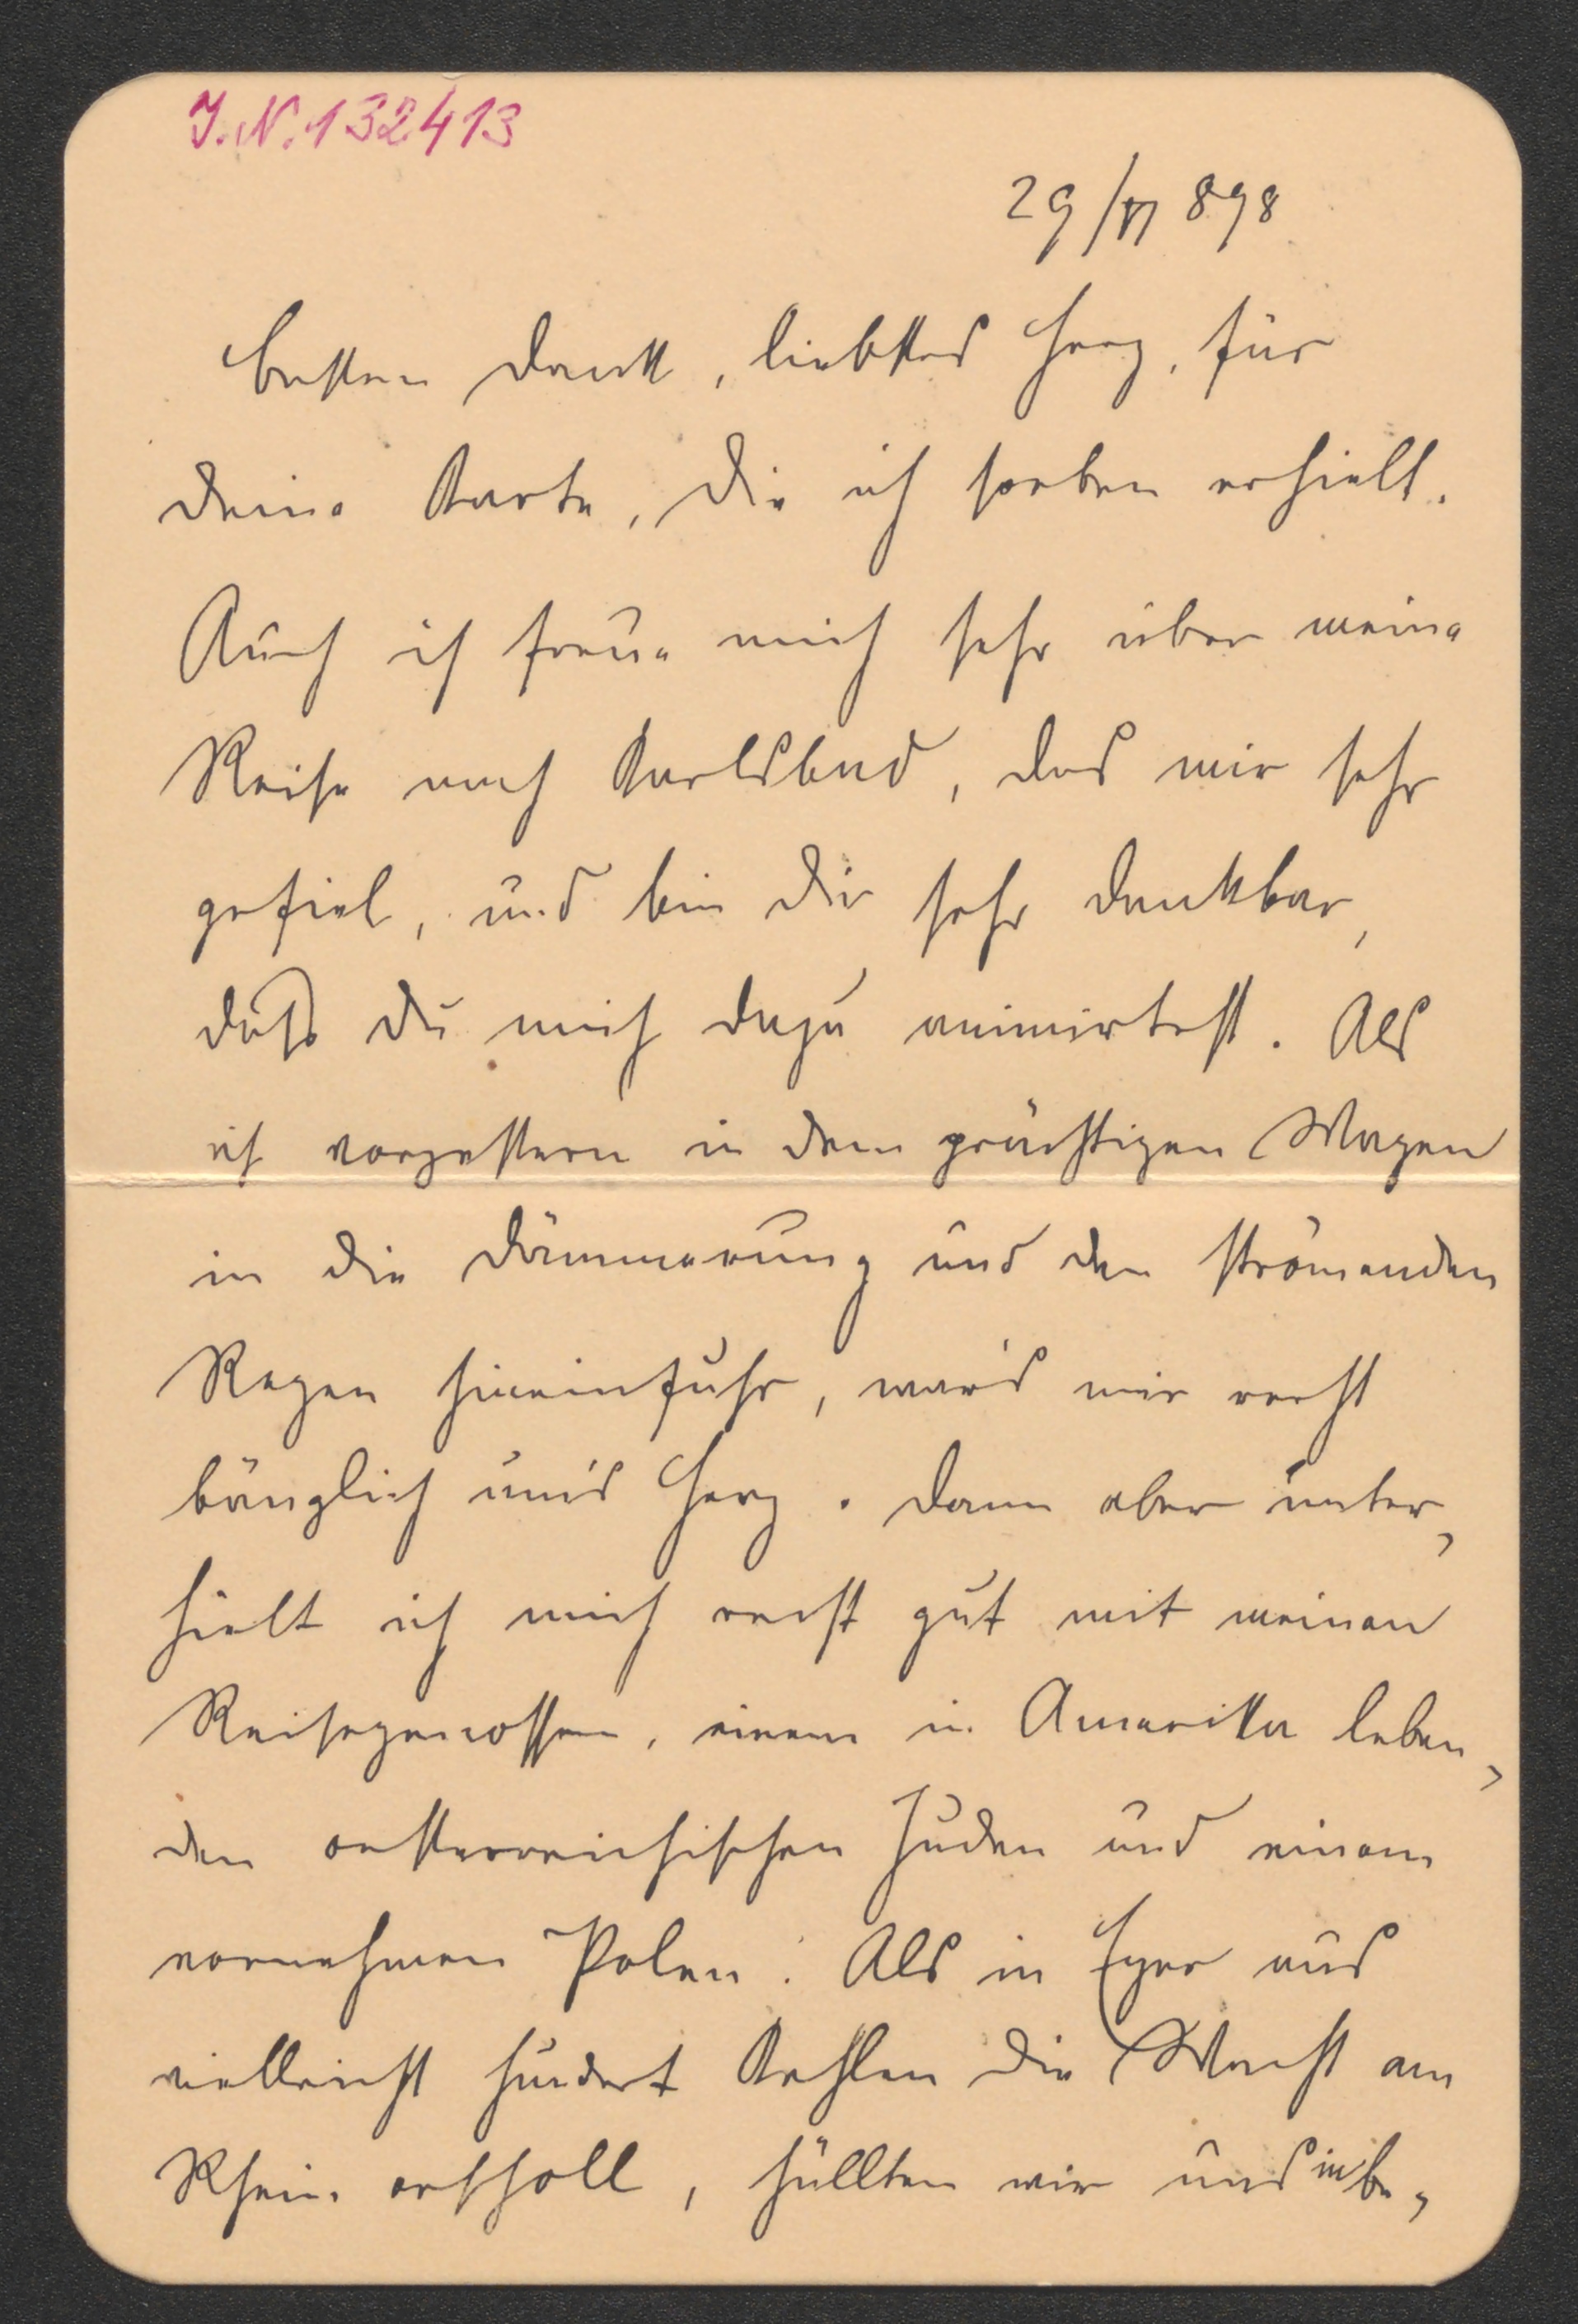 J.N. 132413
29/VI 898
Besten Dank, liebstes Herz, für
Deine Karte, die ich soeben erhielt.
Auch ich freue mich sehr über meine
Reise nach Karlsbad, das mir sehr
gefiel, und bin Dir sehr dankbar,
daß Du mich dazu animirtest. Als
ich vorgestern in dem prächtigen Wagen
in die Dämmerung und den strömenden
Regen hineinfuhr, ward's mir recht
bänglich um's Herz. Dann aber unter-
hielt ich mich recht gut mit meinen
Reisegenossen, einem in Amerika leben-
den oesterreichischen Juden und einem
vornehmen Polen. Als in Eger aus
vielleicht hundert Kehlen die Wacht am
Rhein erscholl, hüllten wir uns in be-